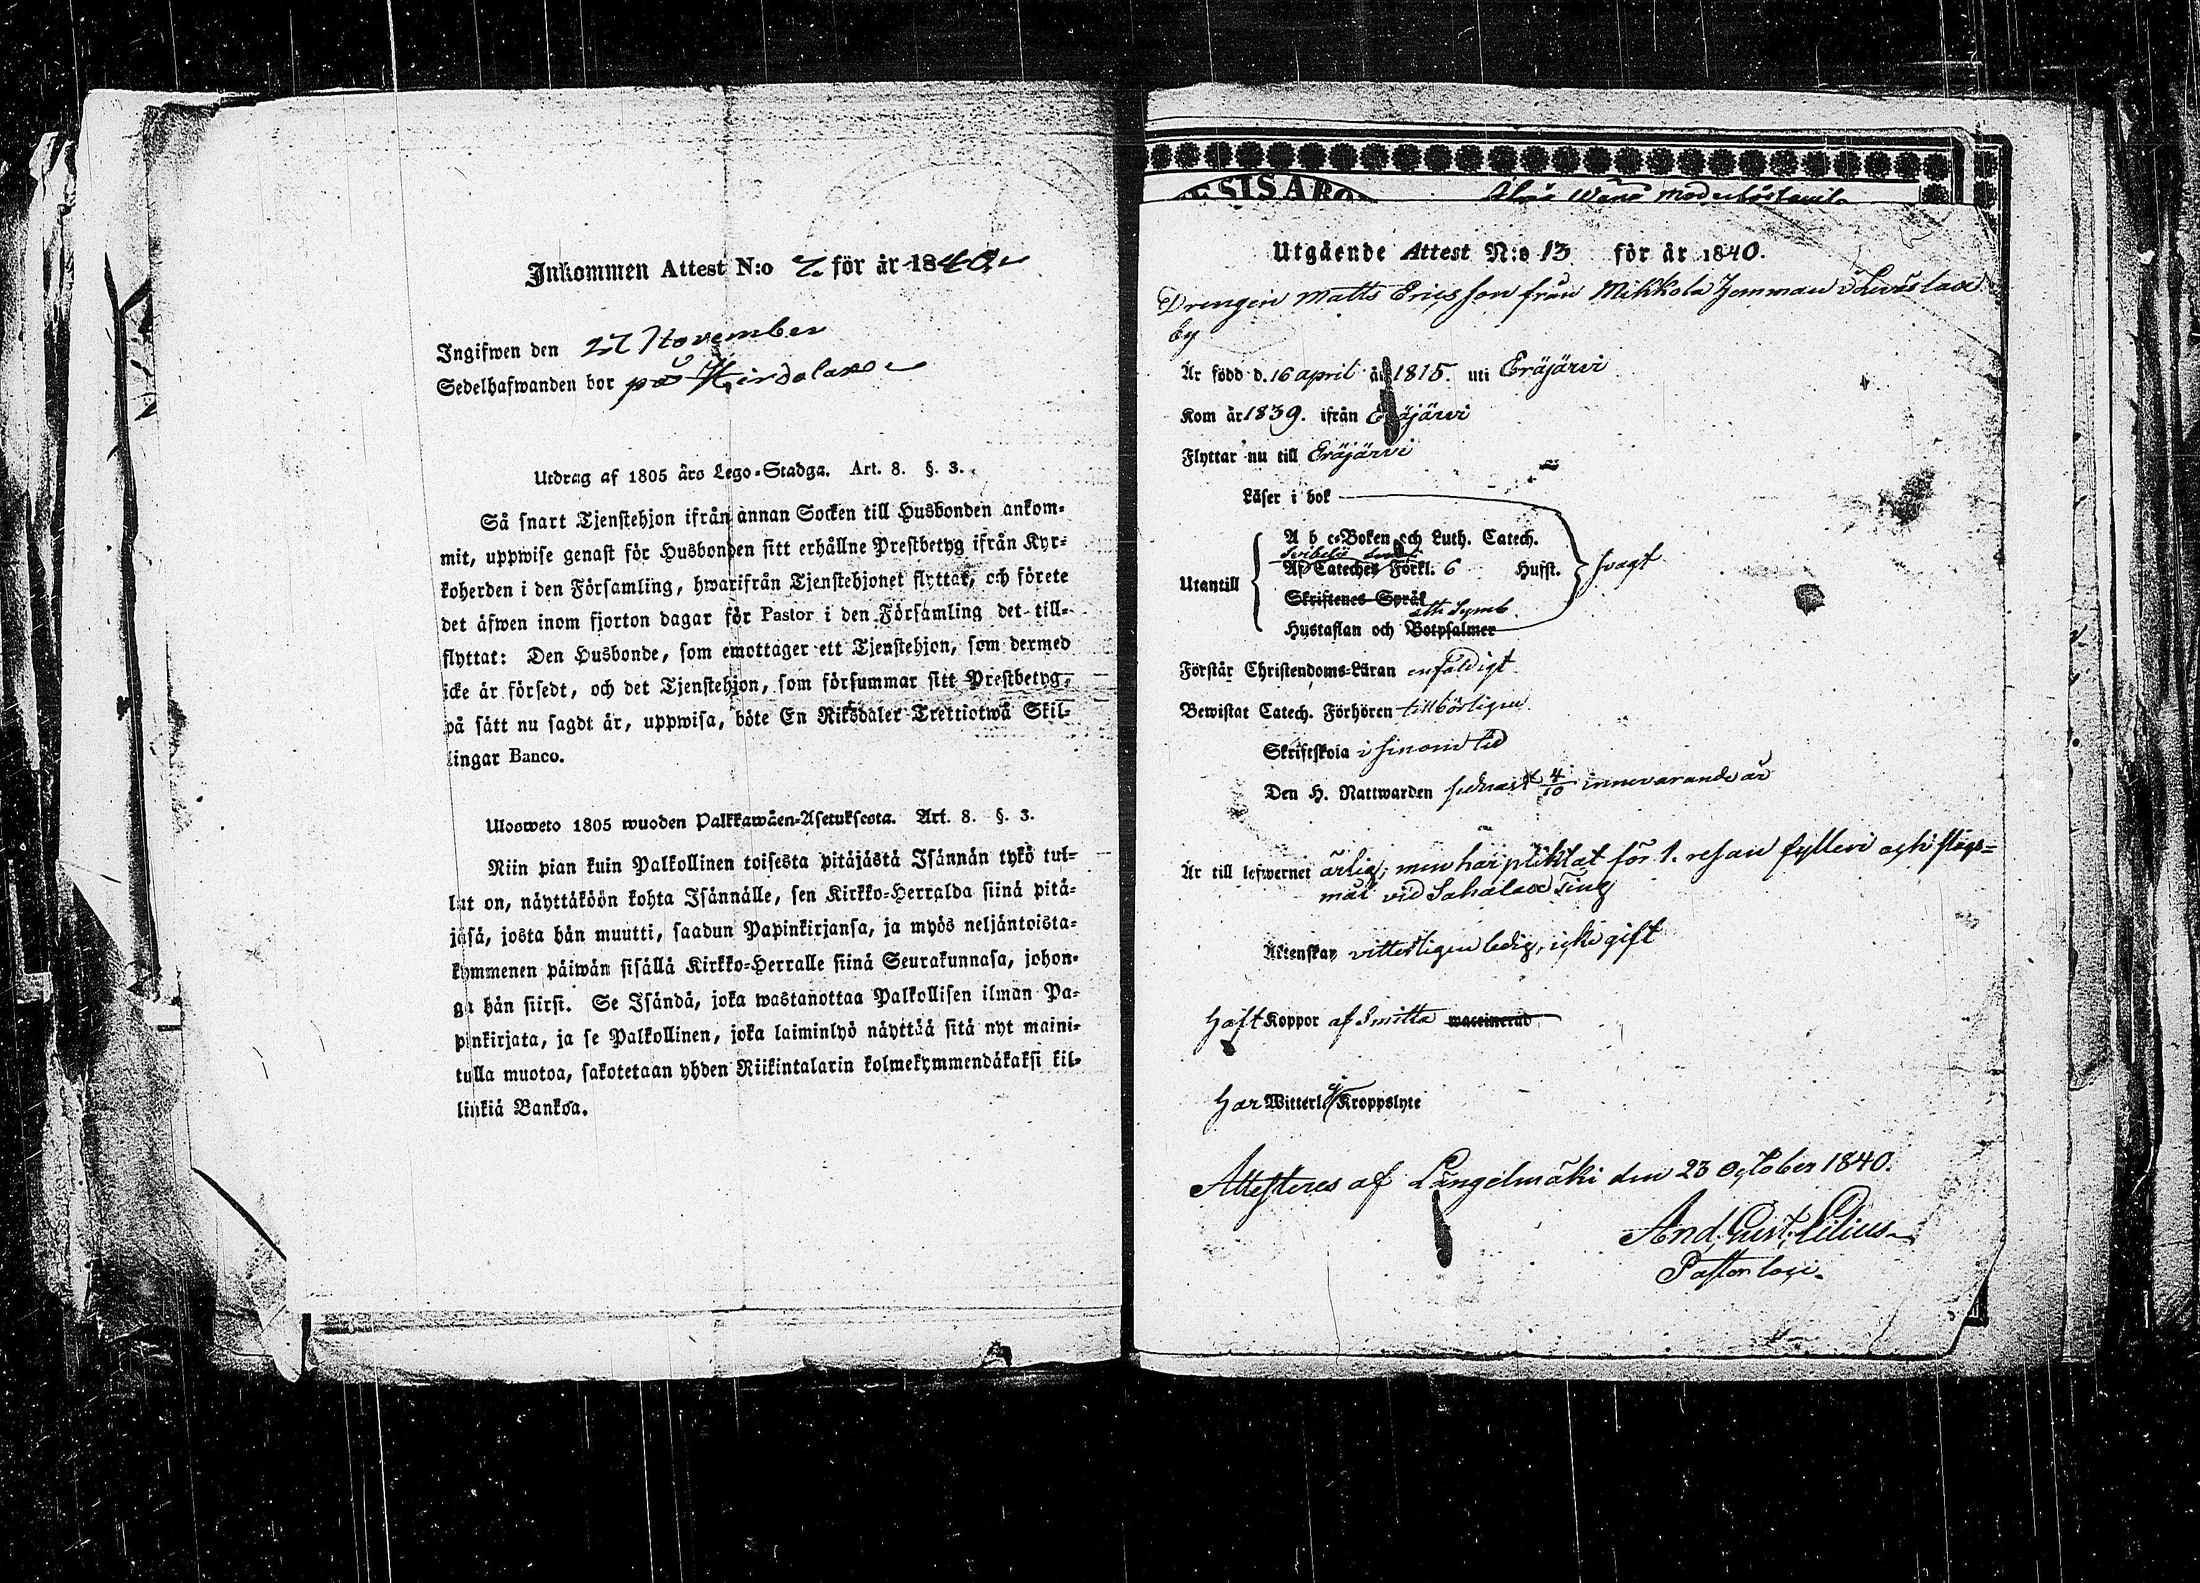 Inkommen Attest N:o 7. för år 1840.
Ingifwen den 27 November
Sedelhafwanden bor på Hirdolaxe
Utdrag af 1805 års Lego-Stadga. Art. 8. §. 3.
Så snart Tjenstehjon ifrån annan Socken till Husbonden ankom-
mit, uppwise genast för Husbonden sitt erhållne Prestbetyg ifrån Kyr-
koherden i den Församling, hwarifrån Tjenstehjonet flyttat, och förete
det äfwen inom fjorton dagar för Pastor i den Församling det till-
flyttat: Den Husbonde, som emottager ett Tjenstehjon, som dermed
icke är försedt, och det Tjenstehjon, som försummar sitt Prestbetyg,
på sätt nu sagdt är, uppwisa, böte En Riksdaler Trettiotwå Skil-
lingar Banco.
Ulosweto 1805 wuoden Palkkawäen-Asetuksesta. Art. 8. §. 3.
Niin pian kuin Palkollinen toisesta pitäjästä Isännän tykö tul-
lut on, näyttäköön kohta Isännälle, sen Kirkko-Herralda siinä pitä-
jäsä, josta hän muutti, saadun Papinkirjansa, ja myös neljäntoista-
kymmenen päiwän sisällä Kirkko-Herralle siinä Seurakunnasa, johon-
ga hän siirsi. Se Isändä, joka wastanottaa Palkollisen ilman Pa-
pinkirjata, ja se Palkollinen, joka laiminlyö näyttää sitä nyt maini-
tulla muotoa, sakotetaan yhden Riikintalarin kolmekymmendäkaksi kil-
linkiä Bankoa.
SISARO
Utgående Attest N:o 13 för år 1840.
Drengen Matts Ericsson från Mikkola Hemman i Livslax
by
Är född d. 16 april år 1815. uti Eräjärvi
Kom år 1839. ifrån Eräjärvi
Flyttar nu till Eräjärvi
Läser i bok
A b c-Boken och Luth. Catech.
Svibelii
Af Cateches Förkl. 6 Husst. svagt
Utantill
Skriftenes Språk
ath Symb.
Hustaflan och Botpsalmer
Förstår Christendoms-Läran enfaldigt
Bewistat Catech. Förhören tillbörligen
Skriftskola i sinom tid
Den H. Nattwarden sednast 4/10 innevarande år
Är till lefwernet ärlig, men har pliktat för 1. resan fylleri och slags=
mål vid Sahalax Ting
Äktenskap vitterligen ledig, icke gift
Haft Koppor af Smitta waccinerad
Har Witterl. ej Kroppslyte
Attesteres af Längelmäki den 23 October 1840.
And. Gust. Lilius
Pastor loci.